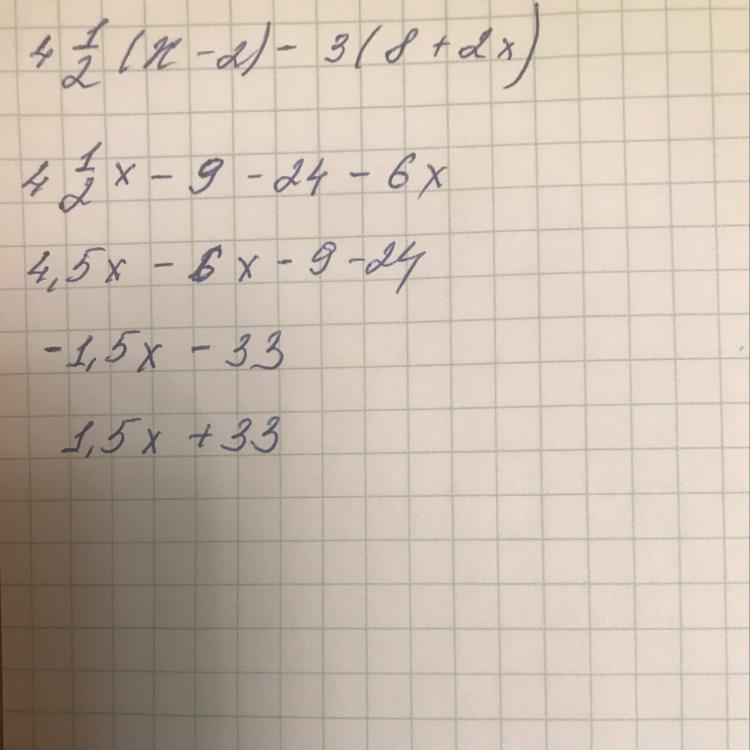 4 1/2 (x - 2) - 3(8 + 2x)
4 1/2 x - 9 - 24 - 6x
4,5x - 6x - 9 - 24
-1,5x - 33
1,5x + 33